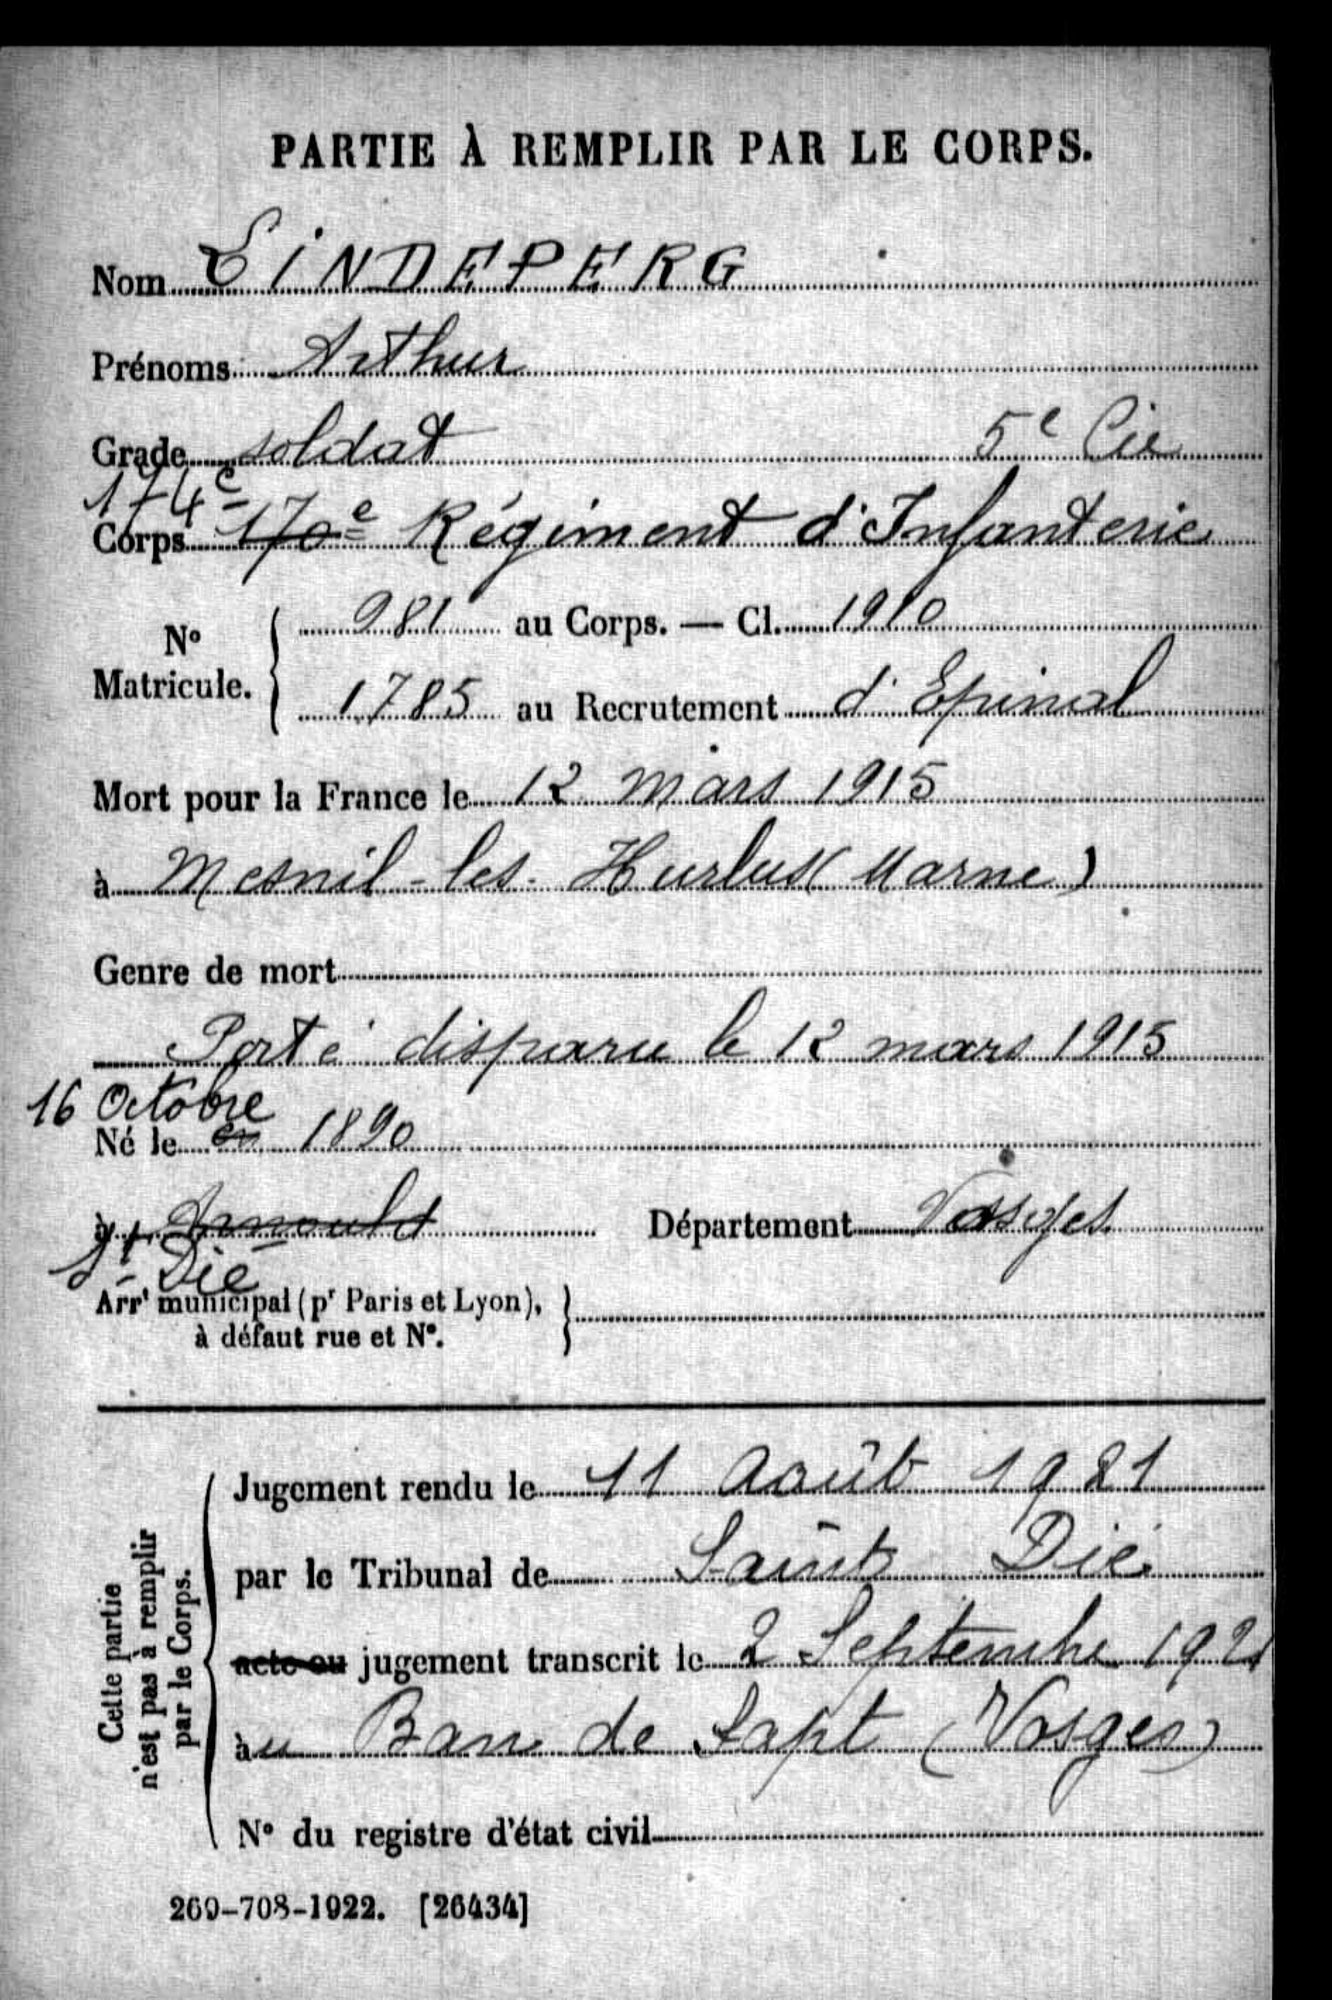 PARTIE À REMPLIR PAR LE CORPS.
Nom LINDEPERG
Prénoms Arthur
Grade soldat 5e Cie
174e
Corps 170e Régiment d'Infanterie
No Matricule. { 981 au Corps. — Cl. 1910
1785 au Recrutement d'Epinal
Mort pour la France le 12 mars 1915
à Mesnil-les-Hurlus (Marne)
Genre de mort
Porté disparu le 12 mars 1915
16 Octobre
Né le en 1890
à Arnould Département Vosges
St Dié
Arrt municipal (pr Paris et Lyon),
à défaut rue et No. }
Cette partie
n'est pas à remplir
par le Corps.
Jugement rendu le 11 Août 1921
par le Tribunal de Saint Dié
acte ou jugement transcrit le 2 Septembre 1921
àu Ban de Sapt (Vosges)
No du registre d'état civil
269-708-1922. [26434]